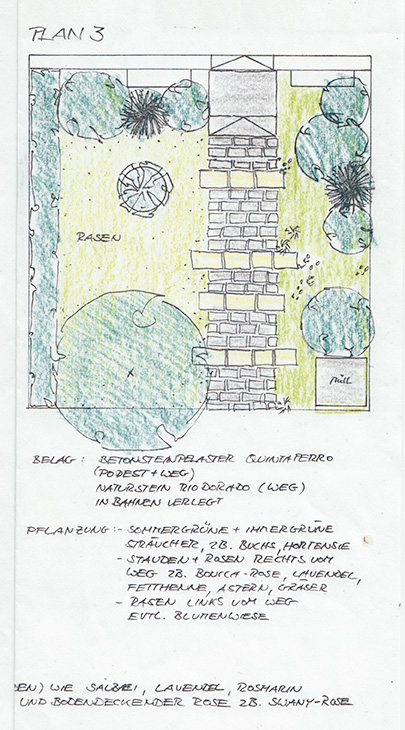 PLAN 3
RASEN
Müll
BELAG: BETONSTEINPFLASTER QUINTAFERRO
(PODEST + WEG)
NATURSTEIN RIO DORADO (WEG)
IN BAHNEN VERLEGT
PFLANZUNG: - SOMMERGRÜNE + IMMERGRÜNE
STRÄUCHER, ZB. BUCHS, HORTENSIE
- STAUDEN + ROSEN RECHTS VOM
WEG ZB. BONICA-ROSE, LAVENDEL,
FETTHENNE, ASTERN, GRÄSER
- RASEN LINKS VOM WEG
EVTL. BLUMENWIESE
EN) WIE SALBEI, LAVENDEL, ROSMARIN
UND BODENDECKENDER ROSE ZB. SWANY-ROSE